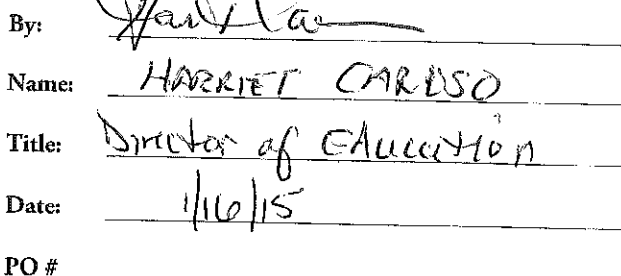 By:
Name: HARRIET CARUSO
Title: Director of Education
Date: 1/16/15
PO #